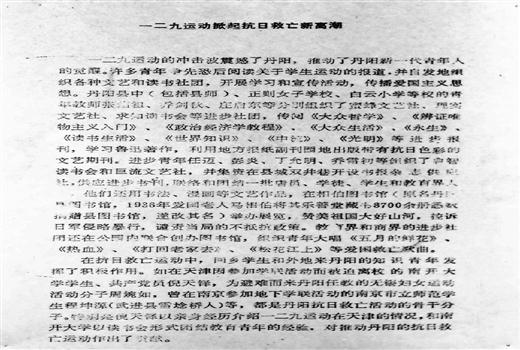 一二九运动掀起抗日救亡新高潮
一二九运动的冲击波震撼了丹阳，推动了丹阳新一代青年人
的觉醒。许多青年争先恐后阅读关于学生运动的报道，并自发地组
织各种文艺和读书社团，开展学习和宣传活动，传播爱国主义思
想。丹阳县中（包括县师）、正则女子学校、白云小学等校的青
年教师张 、乔剑秋、庄启东等分别组织了蜜蜂文艺社、现实
文艺社、求知读书会等进步社团，传阅《大众哲学》、《辨证唯
物主义入门》、《政治经济学教程》、《大众生活》、《永生》、
《读书生活》、《世界知识》、《中流》、《光明》等进步报
刊，学习鲁迅著作，利用地方报纸副刊园地出版带有抗日色彩的
文艺期刊。进步青年任迈、彭炎、丁允明、乔雪初等组织了启智
读书会和巨流文艺社，并集资在县城双井巷开设书报杂志供应
社，供应进步书刊，联络和团结一批店员、学徒、学生和教育界人
他们还用书法、漫画等文艺作品，在相伯图书馆（原名丹
图书馆，1936年爱国老人马相伯将其乐善堂藏书8700余册悉数
捐赠县图书馆，遂改其名）举办展览，赞美祖国大好山河，控诉
日军侵略暴行，谴责当局的不抵抗政策。教育界和商界的进步社
团还在公园内联合创办图书馆，组织青年大唱《五月的鲜花》、
《热血》、《打回老家去》、《松花江上》等爱国救亡歌曲。
在抗日救亡运动中，回乡学生和外地来丹阳的知识青年发
挥了积极作用。如在天津因参加学民活动而被迫离校的南开大
学学生、共产党员倪天铎，为避难而来丹阳任教的无锡妇女运动
活动分子周婉如，曾在南京参加地下学联活动的南京市立师范学
生程坤源（武进县雪堰桥人）等，都是丹阳抗日救亡活动的骨干分
子。特别是倪天铎以亲身经历介绍一二九运动在天津的情况，和南
开大学以读书会形式团结教育青年的经验，对推动丹阳的抗日救
亡运动作出了贡献。